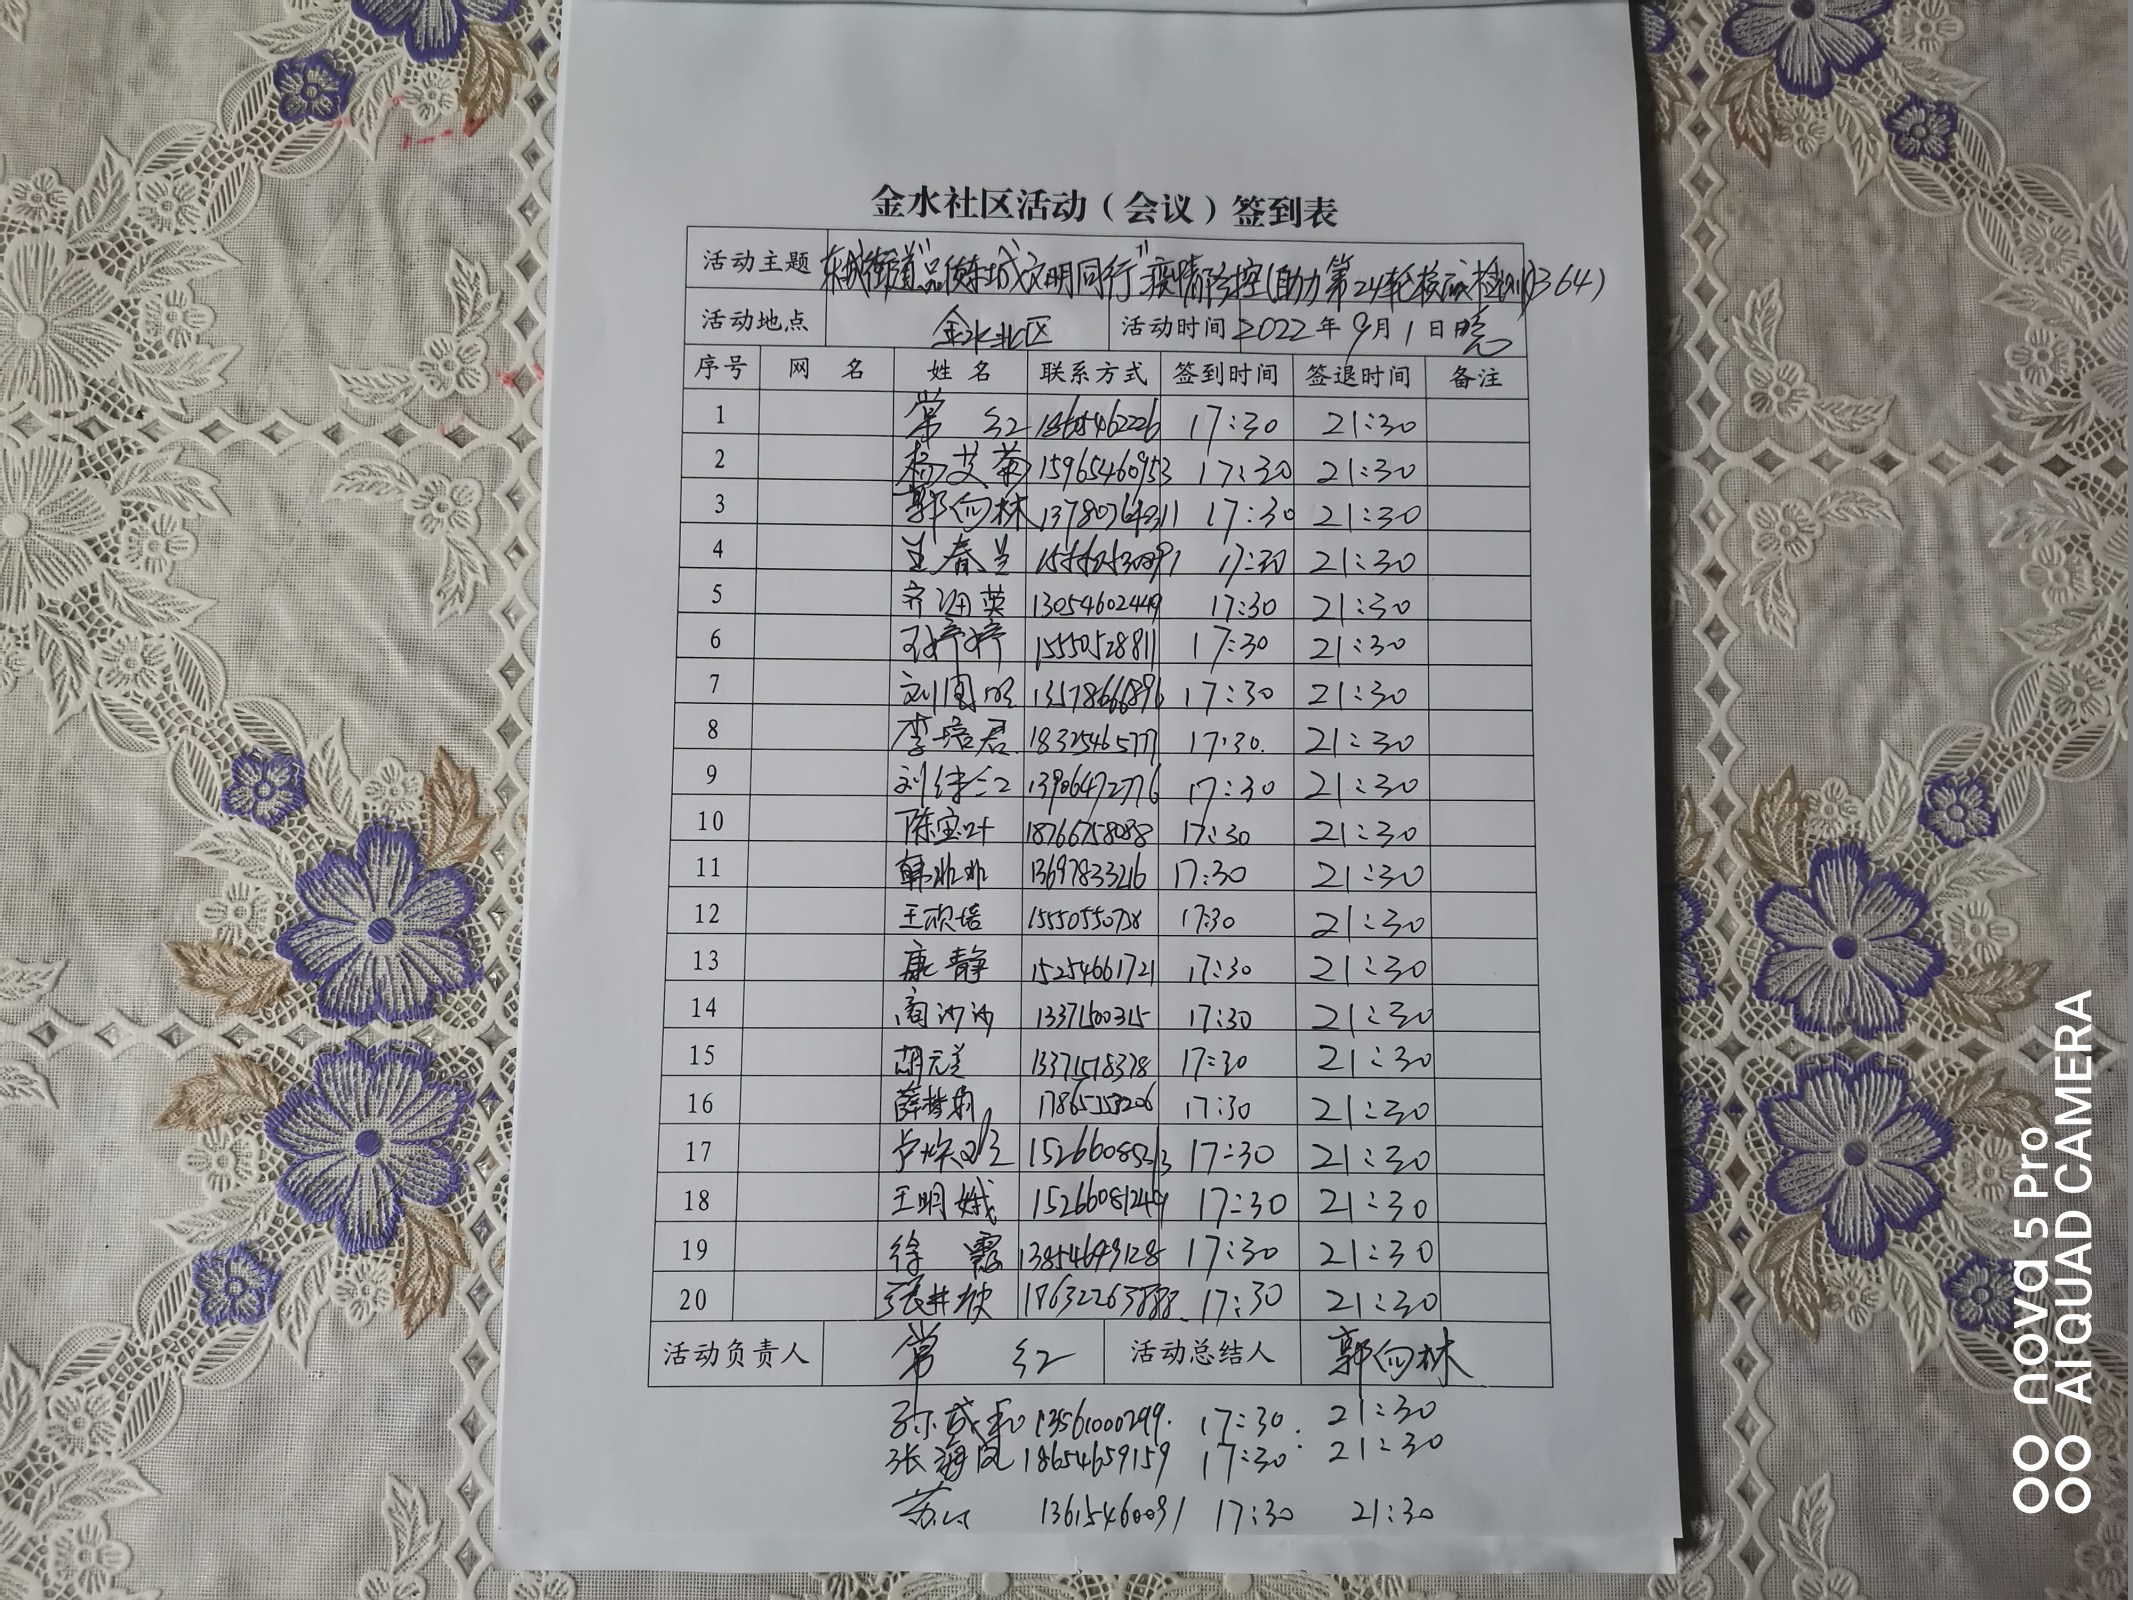 金水社区活动（会议）签到表
活动主题 东城街道"品质东城 文明同行"疫情防控(助力第24轮核酸检测)(364)
活动地点 金水北区 活动时间 2022年9月1日晚
序号 网 名 姓 名 联系方式 签到时间 签退时间 备注
1 常 红 18605462226 17:30 21:30
2 杨艾菊 15965460953 17:30 21:30
3 郭向林 13780764311 17:30 21:30
4 王春兰 17:30 21:30
5 齐 英 13054602449 17:30 21:30
6 王婷婷 15550528811 17:30 21:30
7 刘 明 17:30 21:30
8 李培君 18325465777 17:30 21:30
9 刘 红 13906472776 17:30 21:30
10 陈宝叶 18766758088 17:30 21:30
11 韩 13697833216 17:30 21:30
12 王 培 15550550738 17:30 21:30
13 康静 15254661721 17:30 21:30
14 商沙沙 13371500315 17:30 21:30
15 胡元兰 13371518378 17:30 21:30
16 薛梦莉 17:30 21:30
17 卢焕 17:30 21:30
18 王明娥 15266081249 17:30 21:30
19 徐 霞 17:30 21:30
20 张 欣 17:30 21:30
活动负责人 常 红 活动总结人 郭向林
孙 13561000299 17:30 21:30
张海凤 18654659159 17:30 21:30
苏 13615460031 17:30 21:30
nova 5 Pro
AI QUAD CAMERA